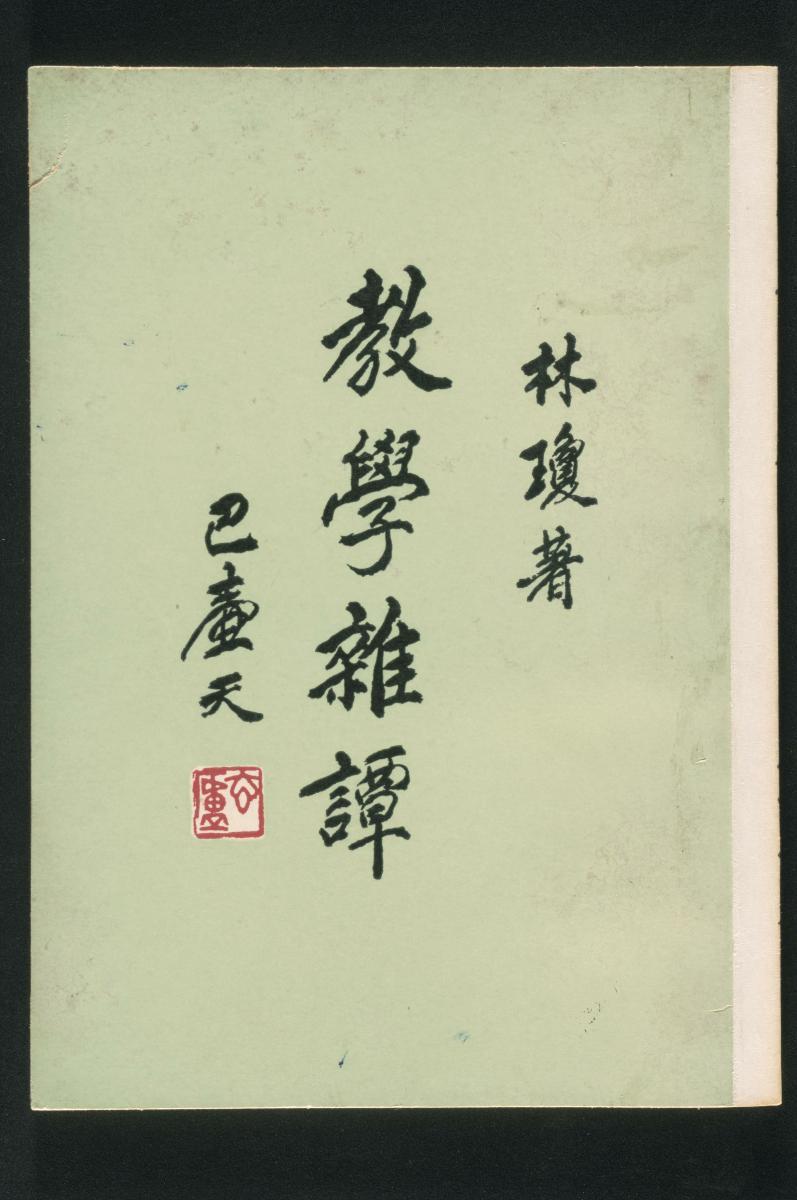 林瓊著
教學雜譚
巴壺天